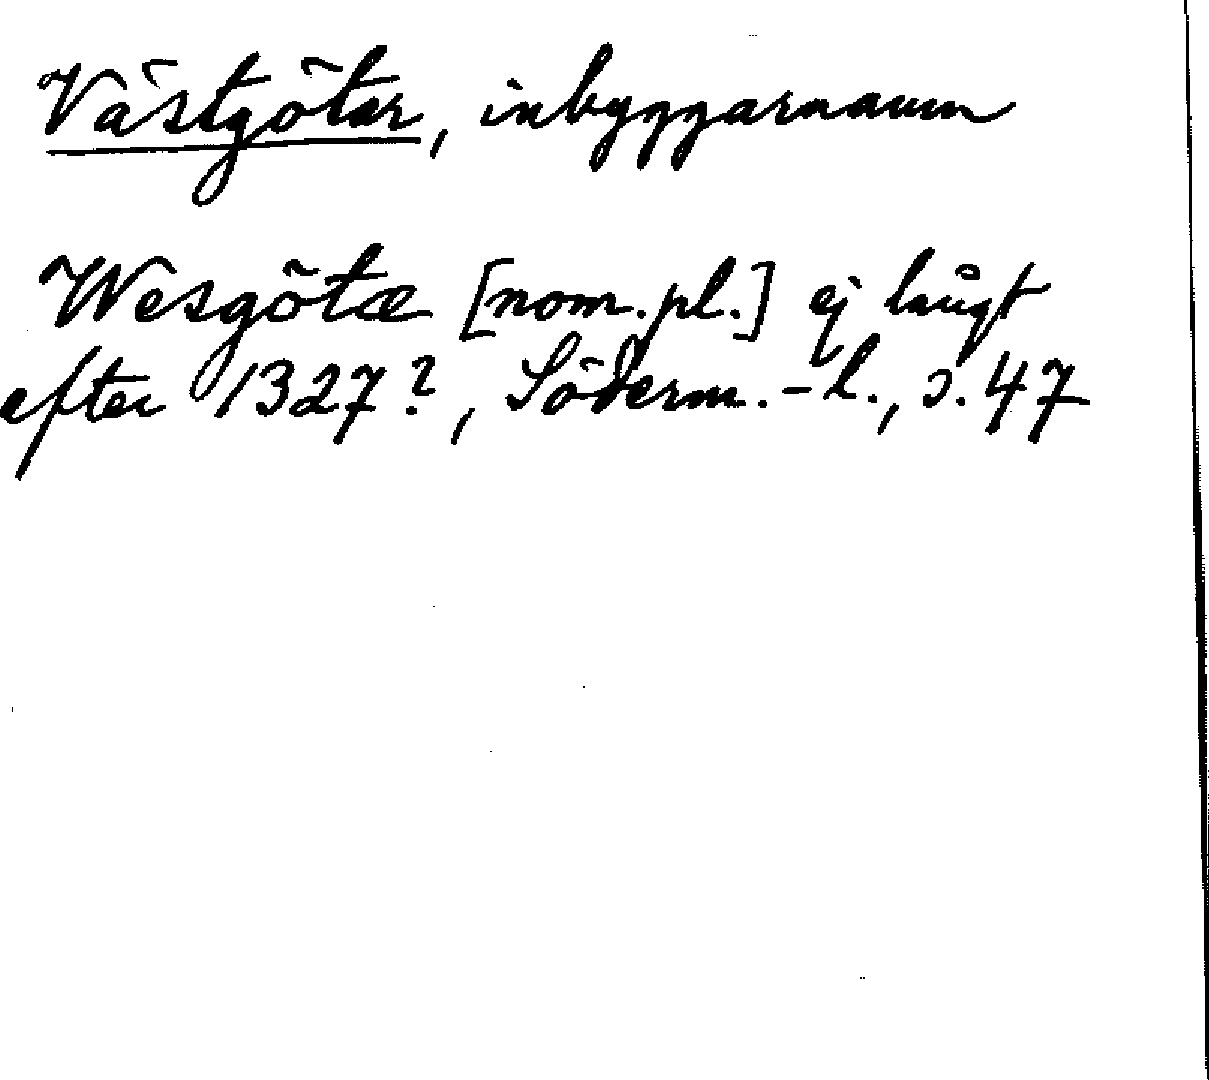 Västgötar, inbyggarnamn
Wesgötæ [nom. pl.] ej långt
efter 1327?, Söderm.-l., s. 47